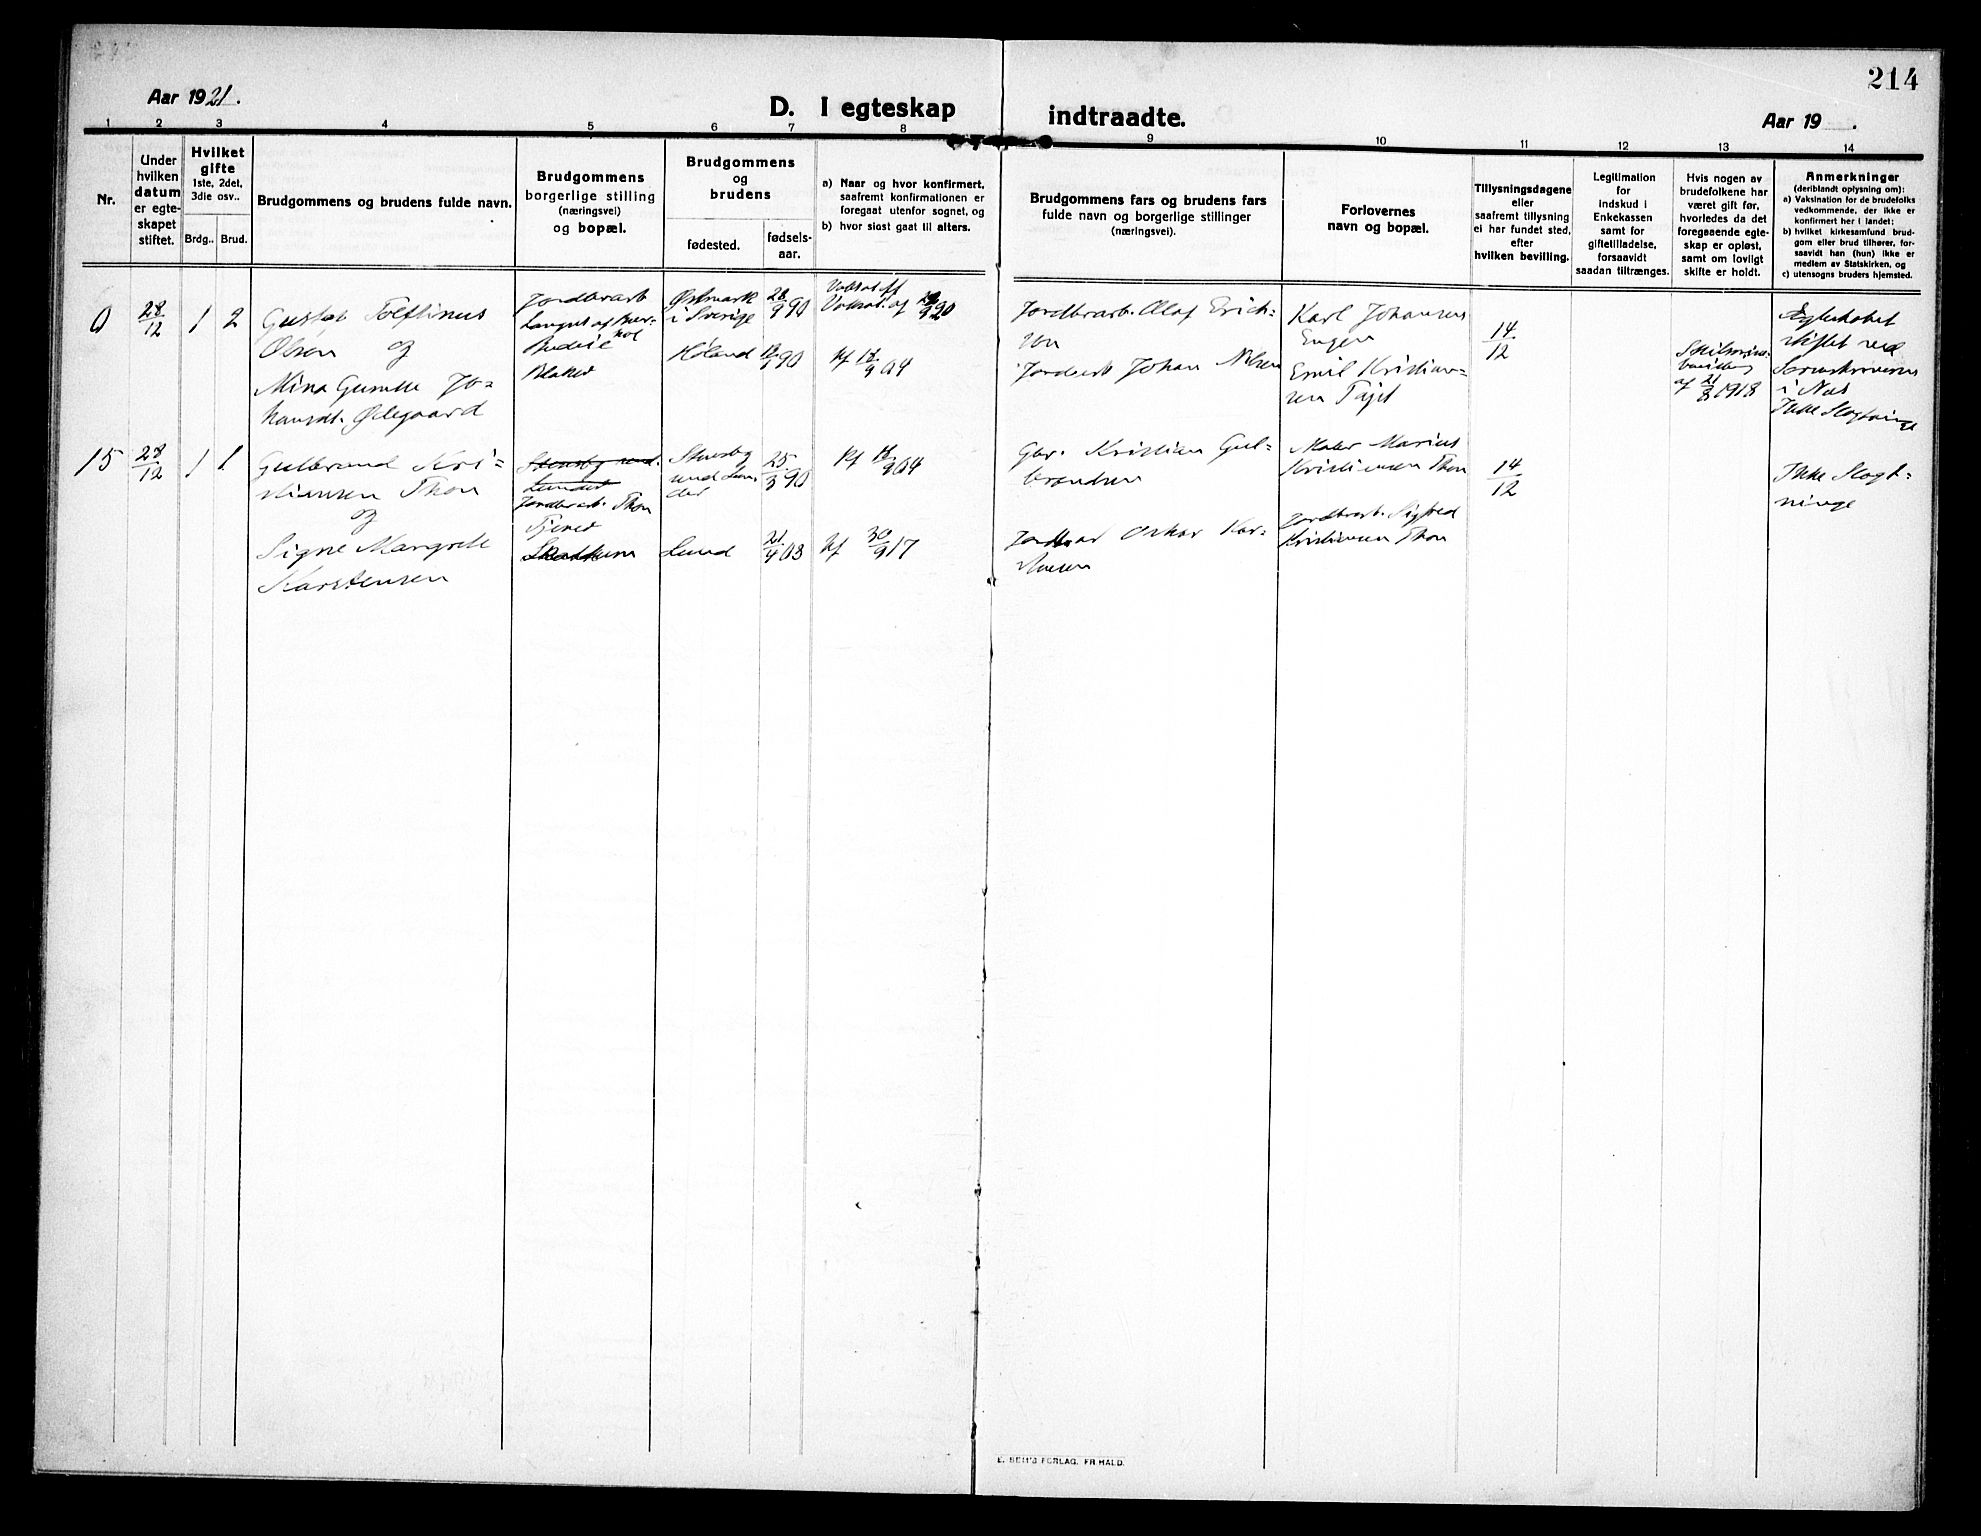 214
Aar 1921.
D. I egteskap
indtraadte.
Aar 19 .
1 2 3 4 5 6 7 8 9 10 11 12 13 14
Nr.
Under
hvilken
datum
er egte-
skapet
stiftet.
Hvilket
gifte
1ste, 2det,
3die osv..
Brdg.. Brud.
Brudgommens og brudens fulde navn.
Brudgommens
borgerlige stilling
(næringsvei)
og bopæl.
Brudgommens
og
brudens
fødested.
fødsels-
aar.
a) Naar og hvor konfirmert,
saafremt konfirmationen er
foregaat utenfor sognet, og
b) hvor sidst gaat til alters.
Brudgommens fars og brudens fars
fulde navn og borgerlige stillinger
(næringsvei).
Forlovernes
navn og bopæl.
Tillysningsdagene
eller
saafremt tillysning
ei har fundet sted,
efter
hvilken bevilling.
Legitimation
for
indskud i
Enkekassen
samt for
giftetilladelse,
forsaavidt
saadan tiltrænges.
Hvis nogen av
brudefolkene har
været gift før,
hvorledes da det
foregaaende egte-
skap er opløst,
samt om lovligt
skifte er holdt.
Anmerkninger
(deriblandt oplysning om):
a) Vaksination for de brudefolks
vedkommende, der ikke er
konfirmert her i landet;
b) hvilket kirkesamfund brud-
gom eller brud tilhører, for-
saavidt han (hun) ikke er
medlem av Statskirken, og
c) utensogns bruders hjemsted.
0 28/12 1 2
Olsen og
Mina Jo-
hansdt. Ødegaard
Jordbrarb
Blaker
i Sverige
28/9 90
Høland
90
kf 18/9 04
Jordbrarb. Olaf Erich-
sen
Johan Nilsen
Karl Johansen
Engen
Emil Kristian-
sen
14/12
af 21/8 1918
stiftet ved
Sorenskriveren
i Nes
Ikke
15 28/12 1 1
Gulbrand Kri-
stiansen Thon
og
Signe Margrete
Karstensen
Jordbrarb. Thon
25/3 90
Lund
21/4 03
kf 18/9 04
kf 30/9 17
Gbr. Kristian Gul-
brandsen
Oskar Kar-
stensen
Maler Marius
Kristiansen Thon
Jordbrarb. Sigfred
Kristiansen Thon
14/12
Ikke Slegt-
ninge
E. SEM'S FORLAG, FR.HALD.